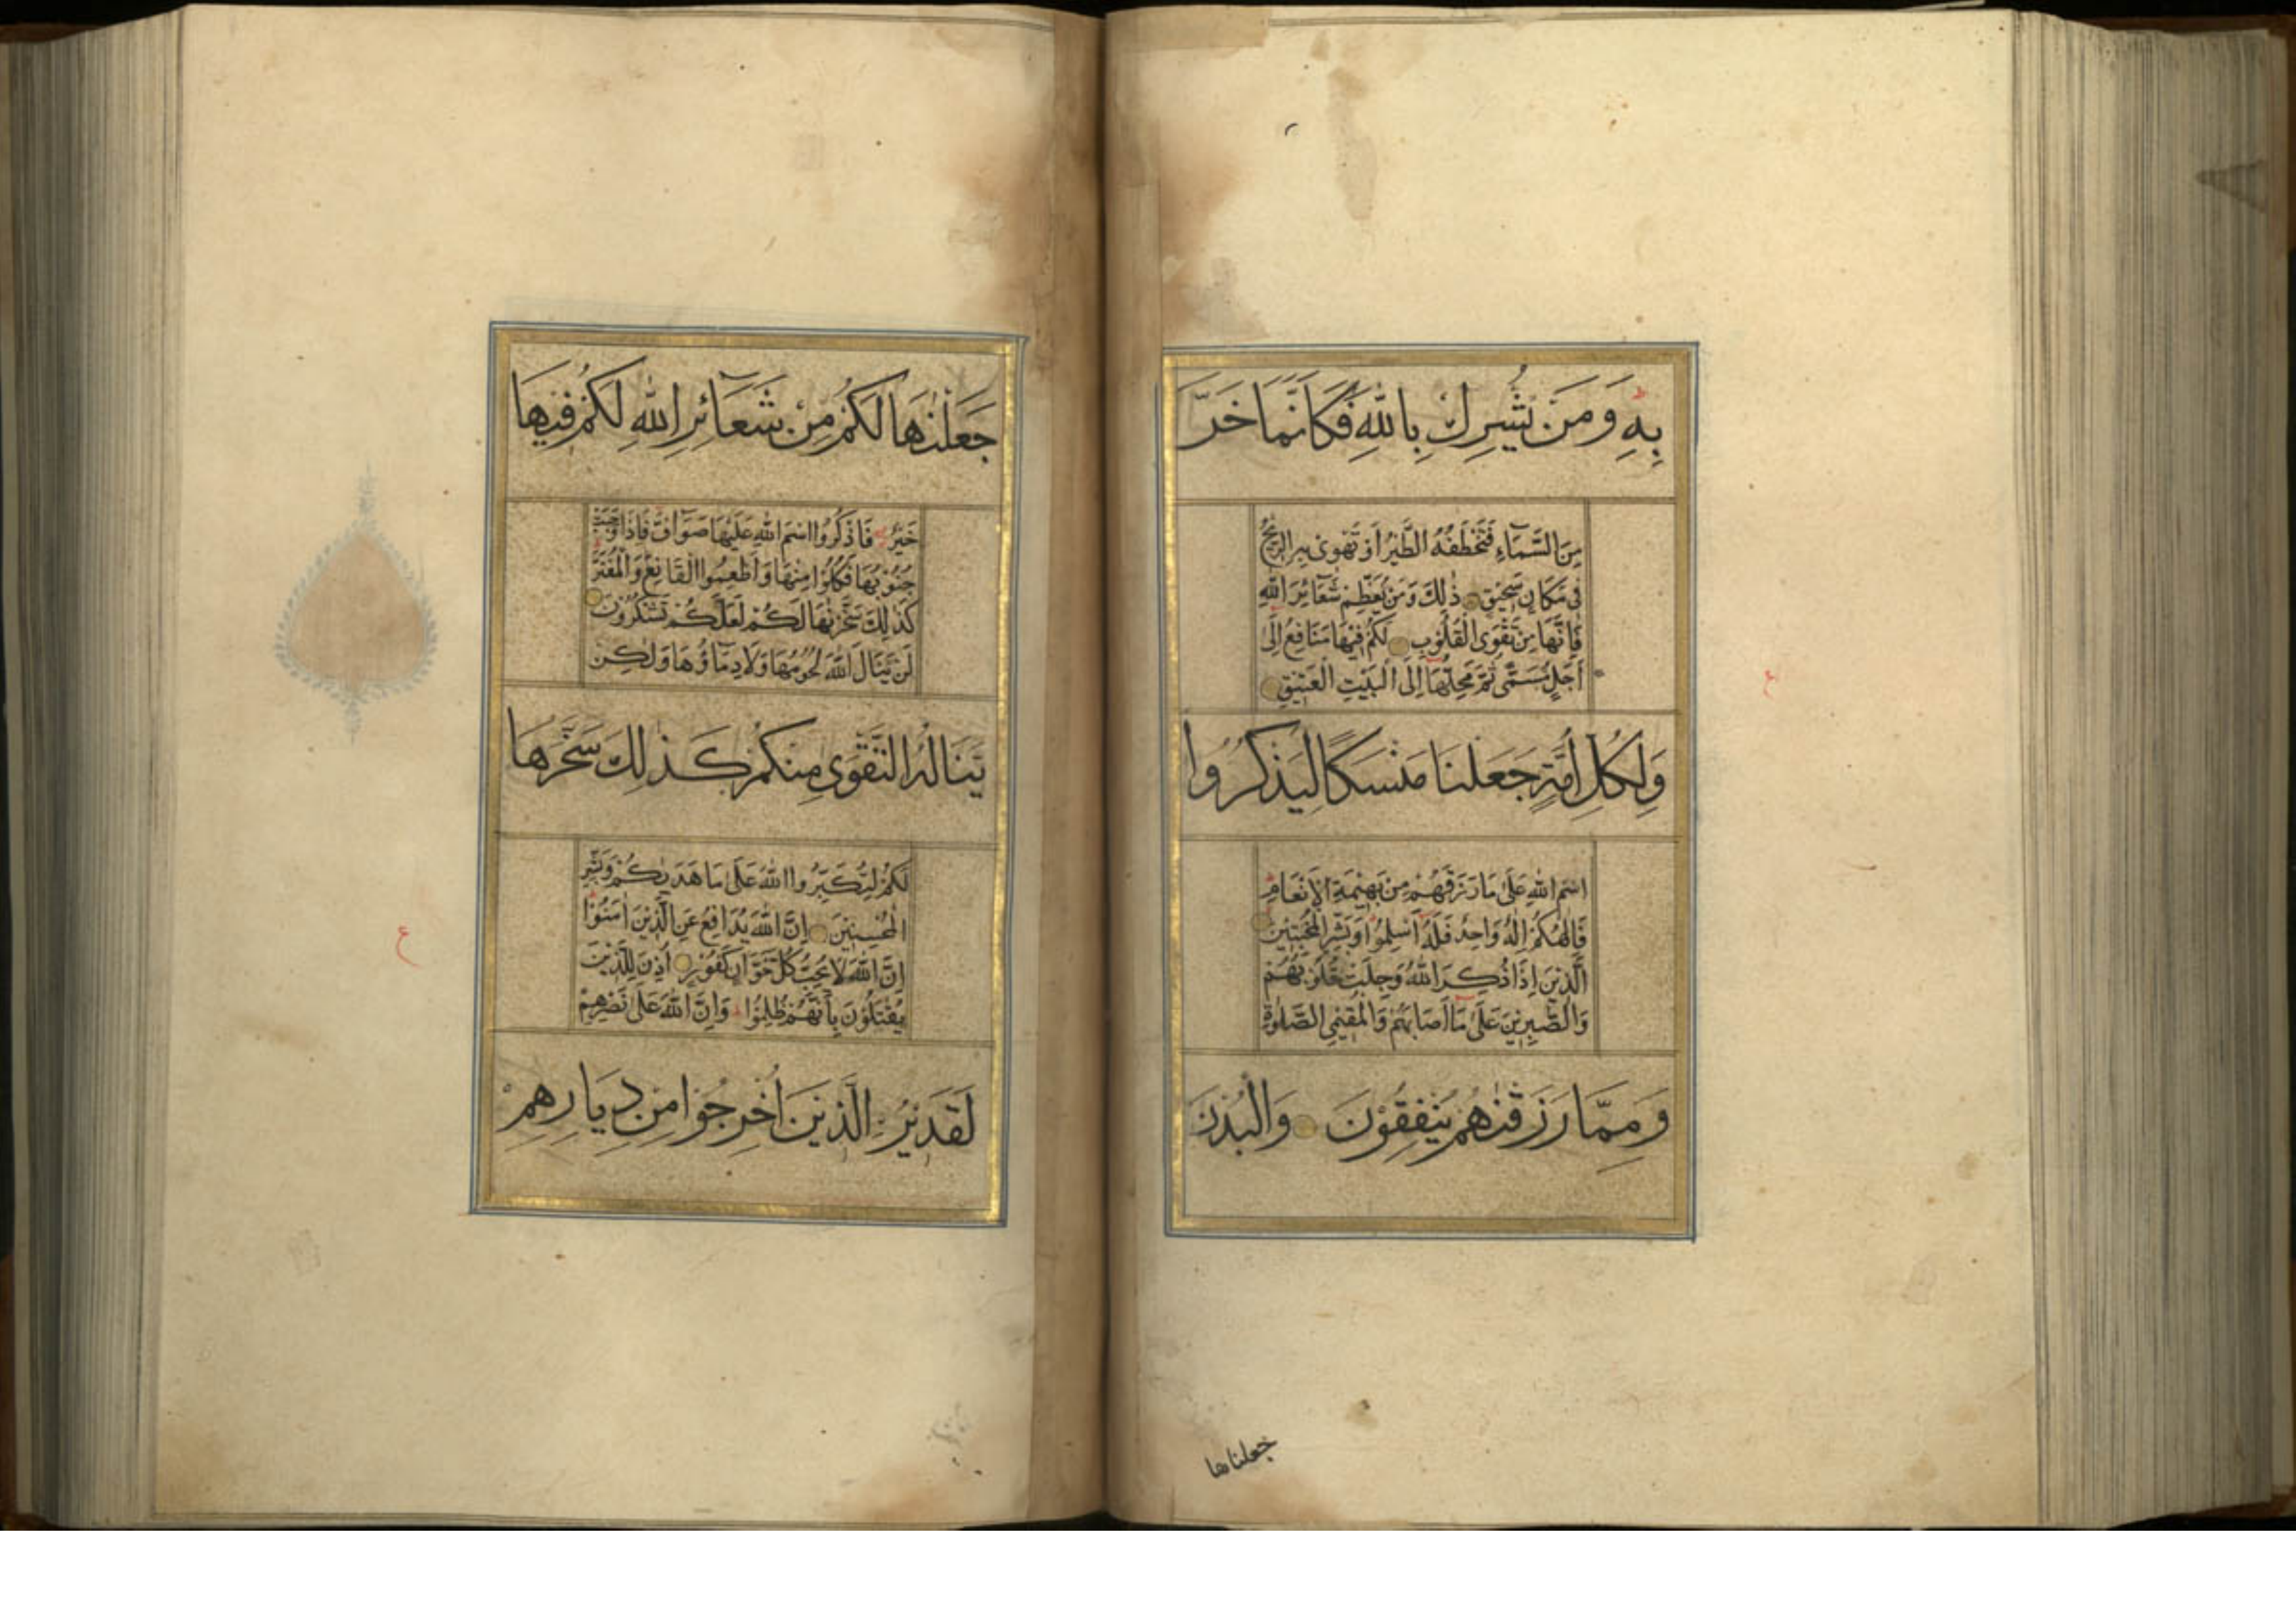 بِهِ وَمَنْ يُشْرِكْ بِاللّٰهِ فَكَاَنَّمَا خَرَّ
مِنَ السَّمَآءِ فَتَخْطَفُهُ الطَّيْرُ اَوْ تَهْوِىْ بِهِ الرِّيْحُ
فِىْ مَكَانٍ سَحِيْقٍ ذٰلِكَ وَمَنْ يُعَظِّمْ شَعَآئِرَ اللّٰهِ
فَاِنَّهَا مِنْ تَقْوَى الْقُلُوْبِ لَكُمْ فِيْهَا مَنَافِعُ اِلٰٓى
اَجَلٍ مُسَمًّى ثُمَّ مَحِلُّهَآ اِلَى الْبَيْتِ الْعَتِيْقِ
وَلِكُلِّ اُمَّةٍ جَعَلْنَا مَنْسَكًا لِيَذْكُرُوا
اسْمَ اللّٰهِ عَلٰى مَا رَزَقَهُمْ مِنْ بَهِيْمَةِ الْاَنْعَامِ
فَاِلٰهُكُمْ اِلٰهٌ وَاحِدٌ فَلَهٗٓ اَسْلِمُوْا وَبَشِّرِ الْمُخْبِتِيْنَ
الَّذِيْنَ اِذَا ذُكِرَ اللّٰهُ وَجِلَتْ قُلُوْبُهُمْ
وَالصّٰبِرِيْنَ عَلٰى مَآ اَصَابَهُمْ وَالْمُقِيْمِى الصَّلٰوةِ
وَمِمَّا رَزَقْنٰهُمْ يُنْفِقُوْنَ وَالْبُدْنَ
جعلناها
جَعَلْنٰهَا لَكُمْ مِنْ شَعَآئِرِ اللّٰهِ لَكُمْ فِيْهَا
خَيْرٌ فَاذْكُرُوا اسْمَ اللّٰهِ عَلَيْهَا صَوَآفَّ فَاِذَا وَجَبَتْ
جُنُوْبُهَا فَكُلُوْا مِنْهَا وَاَطْعِمُوا الْقَانِعَ وَالْمُعْتَرَّ
كَذٰلِكَ سَخَّرْنٰهَا لَكُمْ لَعَلَّكُمْ تَشْكُرُوْنَ
لَنْ يَنَالَ اللّٰهَ لُحُوْمُهَا وَلَا دِمَآؤُهَا وَلٰكِنْ
يَنَالُهُ التَّقْوٰى مِنْكُمْ كَذٰلِكَ سَخَّرَهَا
لَكُمْ لِتُكَبِّرُوا اللّٰهَ عَلٰى مَا هَدٰىكُمْ وَبَشِّرِ
الْمُحْسِنِيْنَ اِنَّ اللّٰهَ يُدَافِعُ عَنِ الَّذِيْنَ اٰمَنُوْا
اِنَّ اللّٰهَ لَا يُحِبُّ كُلَّ خَوَّانٍ كَفُوْرٍ اُذِنَ لِلَّذِيْنَ
يُقٰتَلُوْنَ بِاَنَّهُمْ ظُلِمُوْا وَاِنَّ اللّٰهَ عَلٰى نَصْرِهِمْ
لَقَدِيْرٌ الَّذِيْنَ اُخْرِجُوْا مِنْ دِيَارِهِمْ
ع
ع